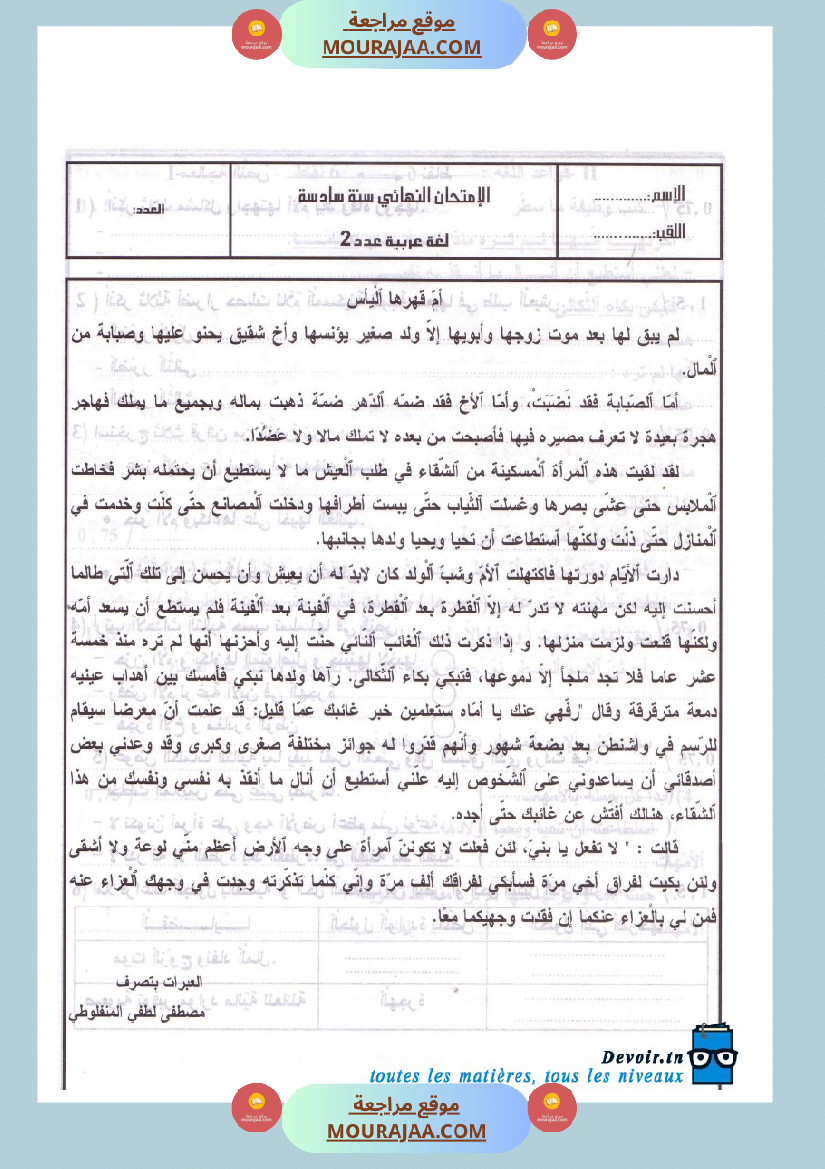 موقع مراجعة
MOURAJAA.COM
الإسم:..............
اللقب:..............
الإمتحان النهائي سنة سادسة
لغة عربية عدد 2
العدد:
أمّ قهرها ٱلْيأس
لم يبق لها بعد موت زوجها وأبويها إلاّ ولد صغير يؤنسها وأخ شقيق يحنو عليها وصبابة من
ٱلْمال.
أمّا ٱلصّبابة فقد نَضَبَتْ، وأمّا ٱلأخ فقد ضمّه ٱلدّهر ضمّة ذهبت بماله وبجميع ما يملك فهاجر
هجرة بعيدة لا تعرف مصيره فيها فأصبحت من بعده لا تملك مالا ولا عَضُدًا.
لقد لقيت هذه ٱلْمرأة ٱلْمسكينة من ٱلشّقاء في طلب ٱلْعيش ما لا يستطيع أن يحتمله بشر فخاطت
ٱلْملابس حتّى عشّى بصرها وغسلت ٱلثّياب حتّى يبست أطرافها ودخلت ٱلْمصانع حتّى كلّت وخدمت في
ٱلْمنازل حتّى ذلّت ولكنّها ٱستطاعت أن تحيا ويحيا ولدها بجانبها.
دارت ٱلأيّام دورتها فاكتهلت ٱلأمّ وشبّ ٱلْولد كان لابدّ له أن يعيش وأن يحسن إلى تلك ٱلّتي طالما
أحسنت إليه لكن مهنته لا تدرّ له إلاّ ٱلْقطرة بعد ٱلْقطرة، في ٱلْفينة بعد ٱلْفينة فلم يستطع أن يسعد أمّه
ولكنّها قنعت ولزمت منزلها. و إذا ذكرت ذلك ٱلْغائب ٱلنّائي حنّت إليه وأحزنها أنها لم تره منذ خمسة
عشر عاما فلا تجد ملجأ إلاّ دموعها، فتبكي بكاء ٱلثّكالى. رآها ولدها تبكي فأمسك بين أهداب عينيه
دمعة مترقرقة وقال "رفّهي عنك يا أمّاه ستعلمين خبر غائبك عمّا قليل: قد علمت أنّ معرضا سيقام
للرّسم في واشنطن بعد بضعة شهور وأنّهم قدّروا له جوائز مختلفة صغرى وكبرى وقد وعدني بعض
أصدقائي أن يساعدوني على ٱلشّخوص إليه علّني أستطيع أن أنال ما أنقذ به نفسي ونفسك من هذا
ٱلشّقاء، هنالك أفتّش عن غائبك حتّى أجده.
قالت : " لا تفعل يا بنيّ، لئن فعلت لا تكوننّ ٱمرأة على وجه ٱلأرض أعظم منّي لوعة ولا أشقى
ولئن بكيت لفراق أخي مرّة فسأبكي لفراقك ألف مرّة وإنّي كلّما تذكّرته وجدت في وجهك ٱلْعزاء عنه
فمن لي بٱلْعزاء عنكما إن فقدت وجهيكما معًا.
العبرات بتصرف
مصطفى لطفي المنفلوطي
Devoir.tn
toutes les matières, tous les niveaux
موقع مراجعة
MOURAJAA.COM